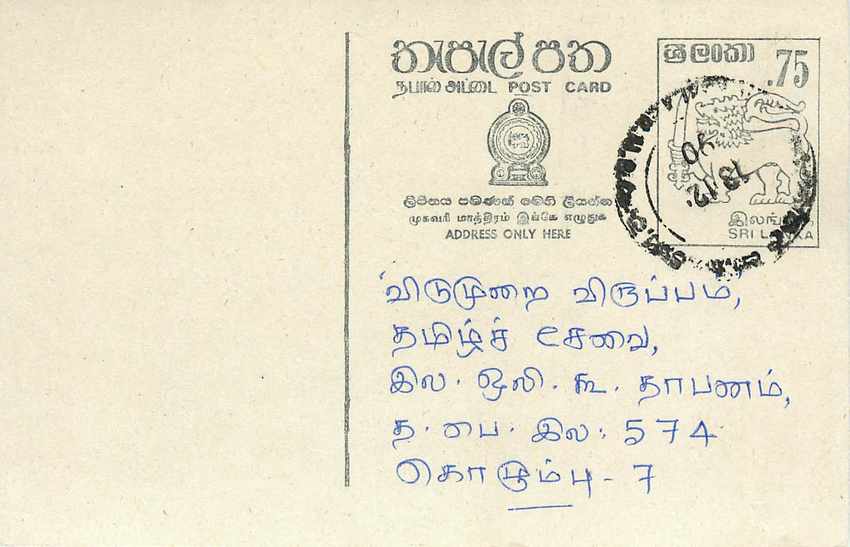 තැපැල් පත
தபால் அட்டை POST CARD
ශ්‍රී ලංකා
.75
ලිපිනය පමණක් මෙහි ලියන්න
முகவரி மாத்திரம் இங்கே எழுதுக
ADDRESS ONLY HERE
இலங்கை
SRI LANKA
13.12.
90
'விடுமுறை விருப்பம்,
தமிழ்ச் சேவை,
இல. ஒலி. கூ. தாபனம்,
த. பை. இல. 574
கொழும்பு - 7